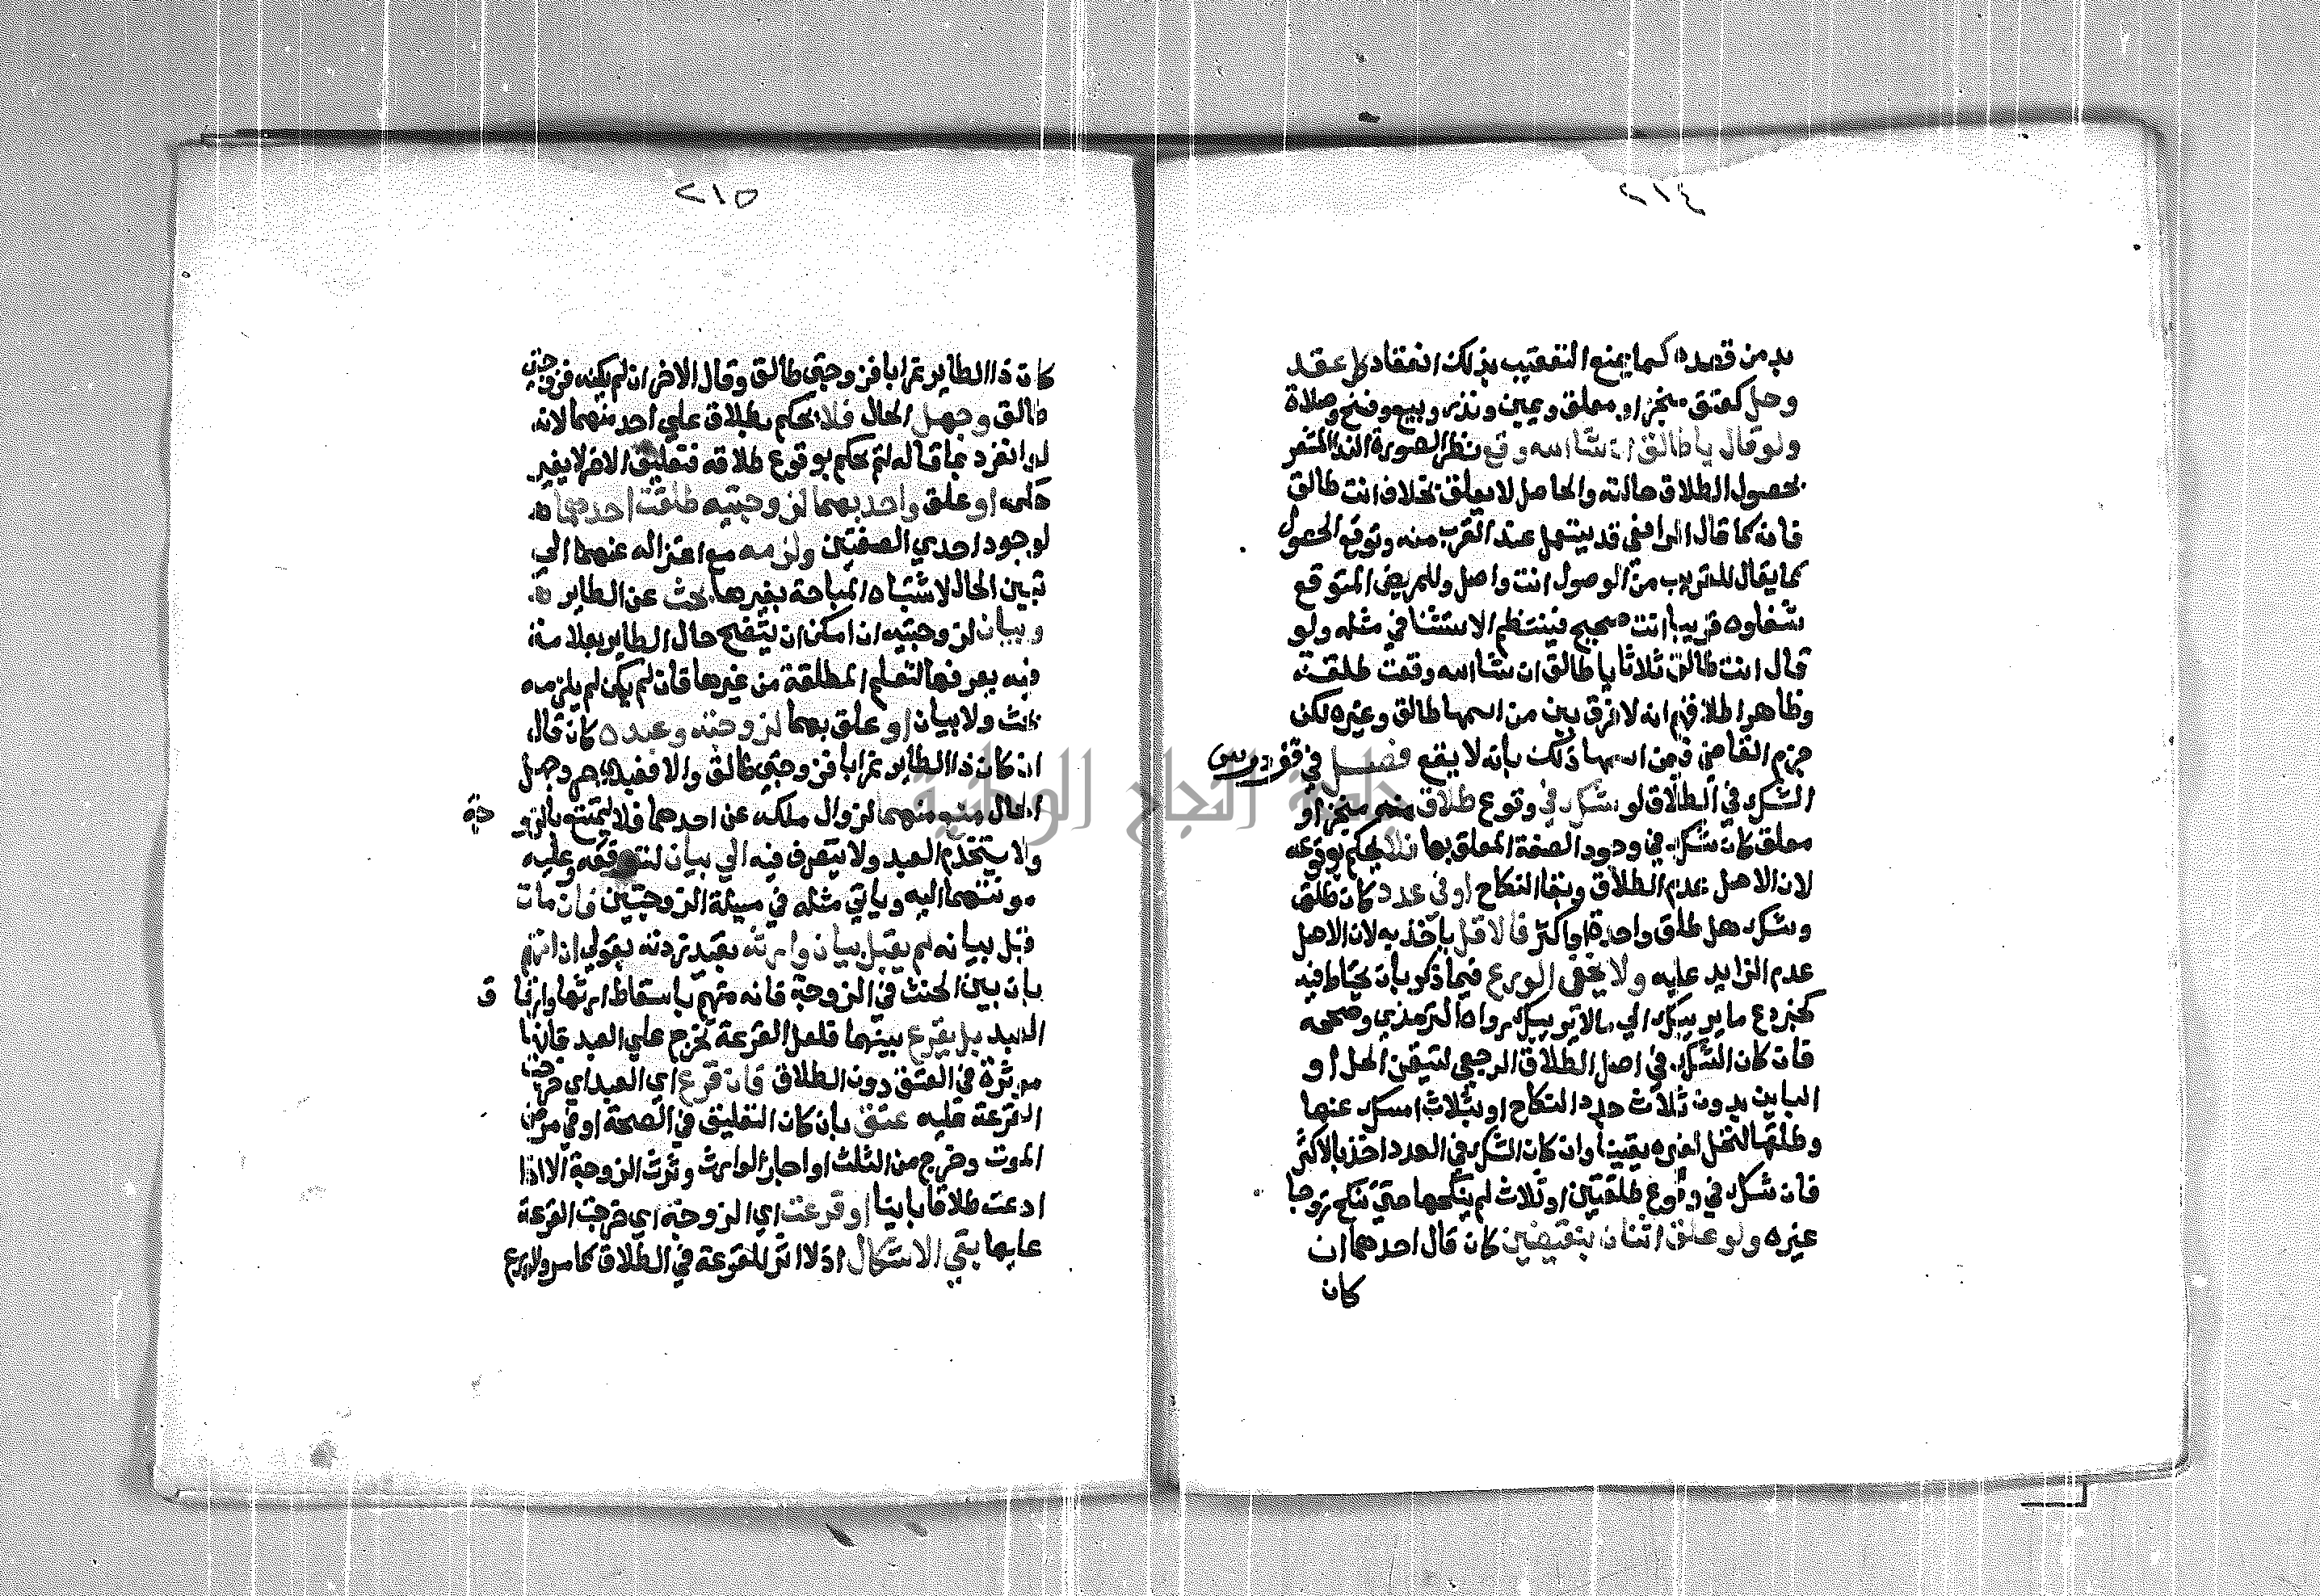 ٢١٤
بد من قصده كما يمنع التعقيب بذلك انعقاد كل عقد
وحل كعتق منجز او معلق ويمين ونذر وبيع وفسخ وصلاة
ولو قال يا طالق ان شا الله وقع نظر الصورة الندا المشعر
بحصول الطلاق حالته والحاصل لا يعلق بخلاف انت طالق
فانه كما قال الرافعي قد يستعمل عند القرب منه وتوقع الحصول
كما يقال للقريب من الوصول انت واصل وللمريض المتوقع
شفاوه قريبا انت صحيح فينتظم الاستثنا في مثله ولو
قال انت طالق ثلاثا يا طالق ان شا الله وقعت طلقة
وظاهر اطلاقهم انه لا فرق بين من اسمها طالق وغيره لكن
جزم القاضي فمن اسمها ذلك بانه لا يقع فصل في
الشك في الطلاق لو شك في وقوع طلاق منه منجز او
معلق كان شك في وجود الصفة المعلق بها فلا يحكم بوقوعه
لان الاصل عدم الطلاق وبقا النكاح او في عدد كان طلق
وشك هل طلق واحدة او اكثر فالاقل ياخذ به لان الاصل
عدم الزايد عليه ولا يخفى الورع فيما ذكر بان يحتاط فيه
لخبر دع ما يريبك الي ما لا يريبك رواه الترمذي وصححه
فان كان الشك في اصل الطلاق الرجعي ليتيقن الحل او
الباين بدون ثلاث جدد النكاح او بثلاث امسك عنها
وطلقها لتحل لغيره يقينا وان كان الشك في العدد اخذ بالاكثر
فان شك في وقوع طلقتين او ثلاث لم ينكحها حتي تنكح زوجا
غيره ولو علق اثنان بنقيضين كان قال احدهما ان
كان
٢١٥
كان ذا الطاير غرابا فزوجتي طالق وقال الاخر ان لم يكنه فزوجتي
طالق وجهل الحال فلا يحكم بطلاق علي احد منهما لانه
لو انفرد بما قاله لم يحكم بوقوع طلاقه فتعليق الاخر لا يغير
حكمه او علق واحد بهما لزوجتيه طلقت احدهما
لوجود احدي الصفتين ولزمه مع اعتزاله عنهما الي
تبين الحال لاشتباه المباحة بغيرها بحث عن الطاير
وبيان لزوجتيه ان امكن ان يتضح حال الطاير بعلامة
فيه يعرفها لتعلم المطلقة من غيرها فان لم يكن لم يلزمه
بحث ولا بيان او علق بهما لزوجته وعبده كان قال
ان كان ذا الطاير غرابا فزوجتي طالق والا فعبدي حر وجهل
الحال منع منهما لزوال ملكه عن احدهما فلا يتمتع بالزو
جة
ولا يستخدم العبد ولا يتصرف فيه الي بيان لتوقعه وعليه
مونتهما اليه وياتي مثله في مسيلة الزوجتين فان مات
قبل بيانه لم يقبل بيان وارثه بقيد زدته بقولي ان اتهم
بان بين الحنث في الزوجة فانه متهم باسقاط ارثها وارقا
ق
العبد بل يقرع بينهما فلعل القرعة تخرج علي العبد فانها
موثرة في العتق دون الطلاق فان قرع اي العبد اي خرجت
القرعة عليه عتق بان كان التعليق في الصحة او في مرض
الموت وخرج من الثلث او اجاز الوارث وترث الزوجة الا اذا
ادعت طلاقا باينا او قرعت اي الزوجة اي خرجت القرعة
عليها بقي الاشكال اذ لا اثر للقرعة في الطلاق كما مر والورع
جامعة النجاح الوطنية